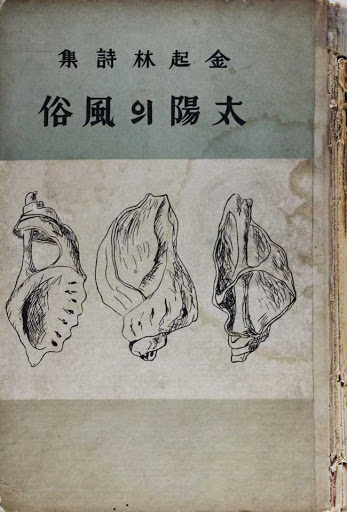 金起林詩集
太陽의風俗